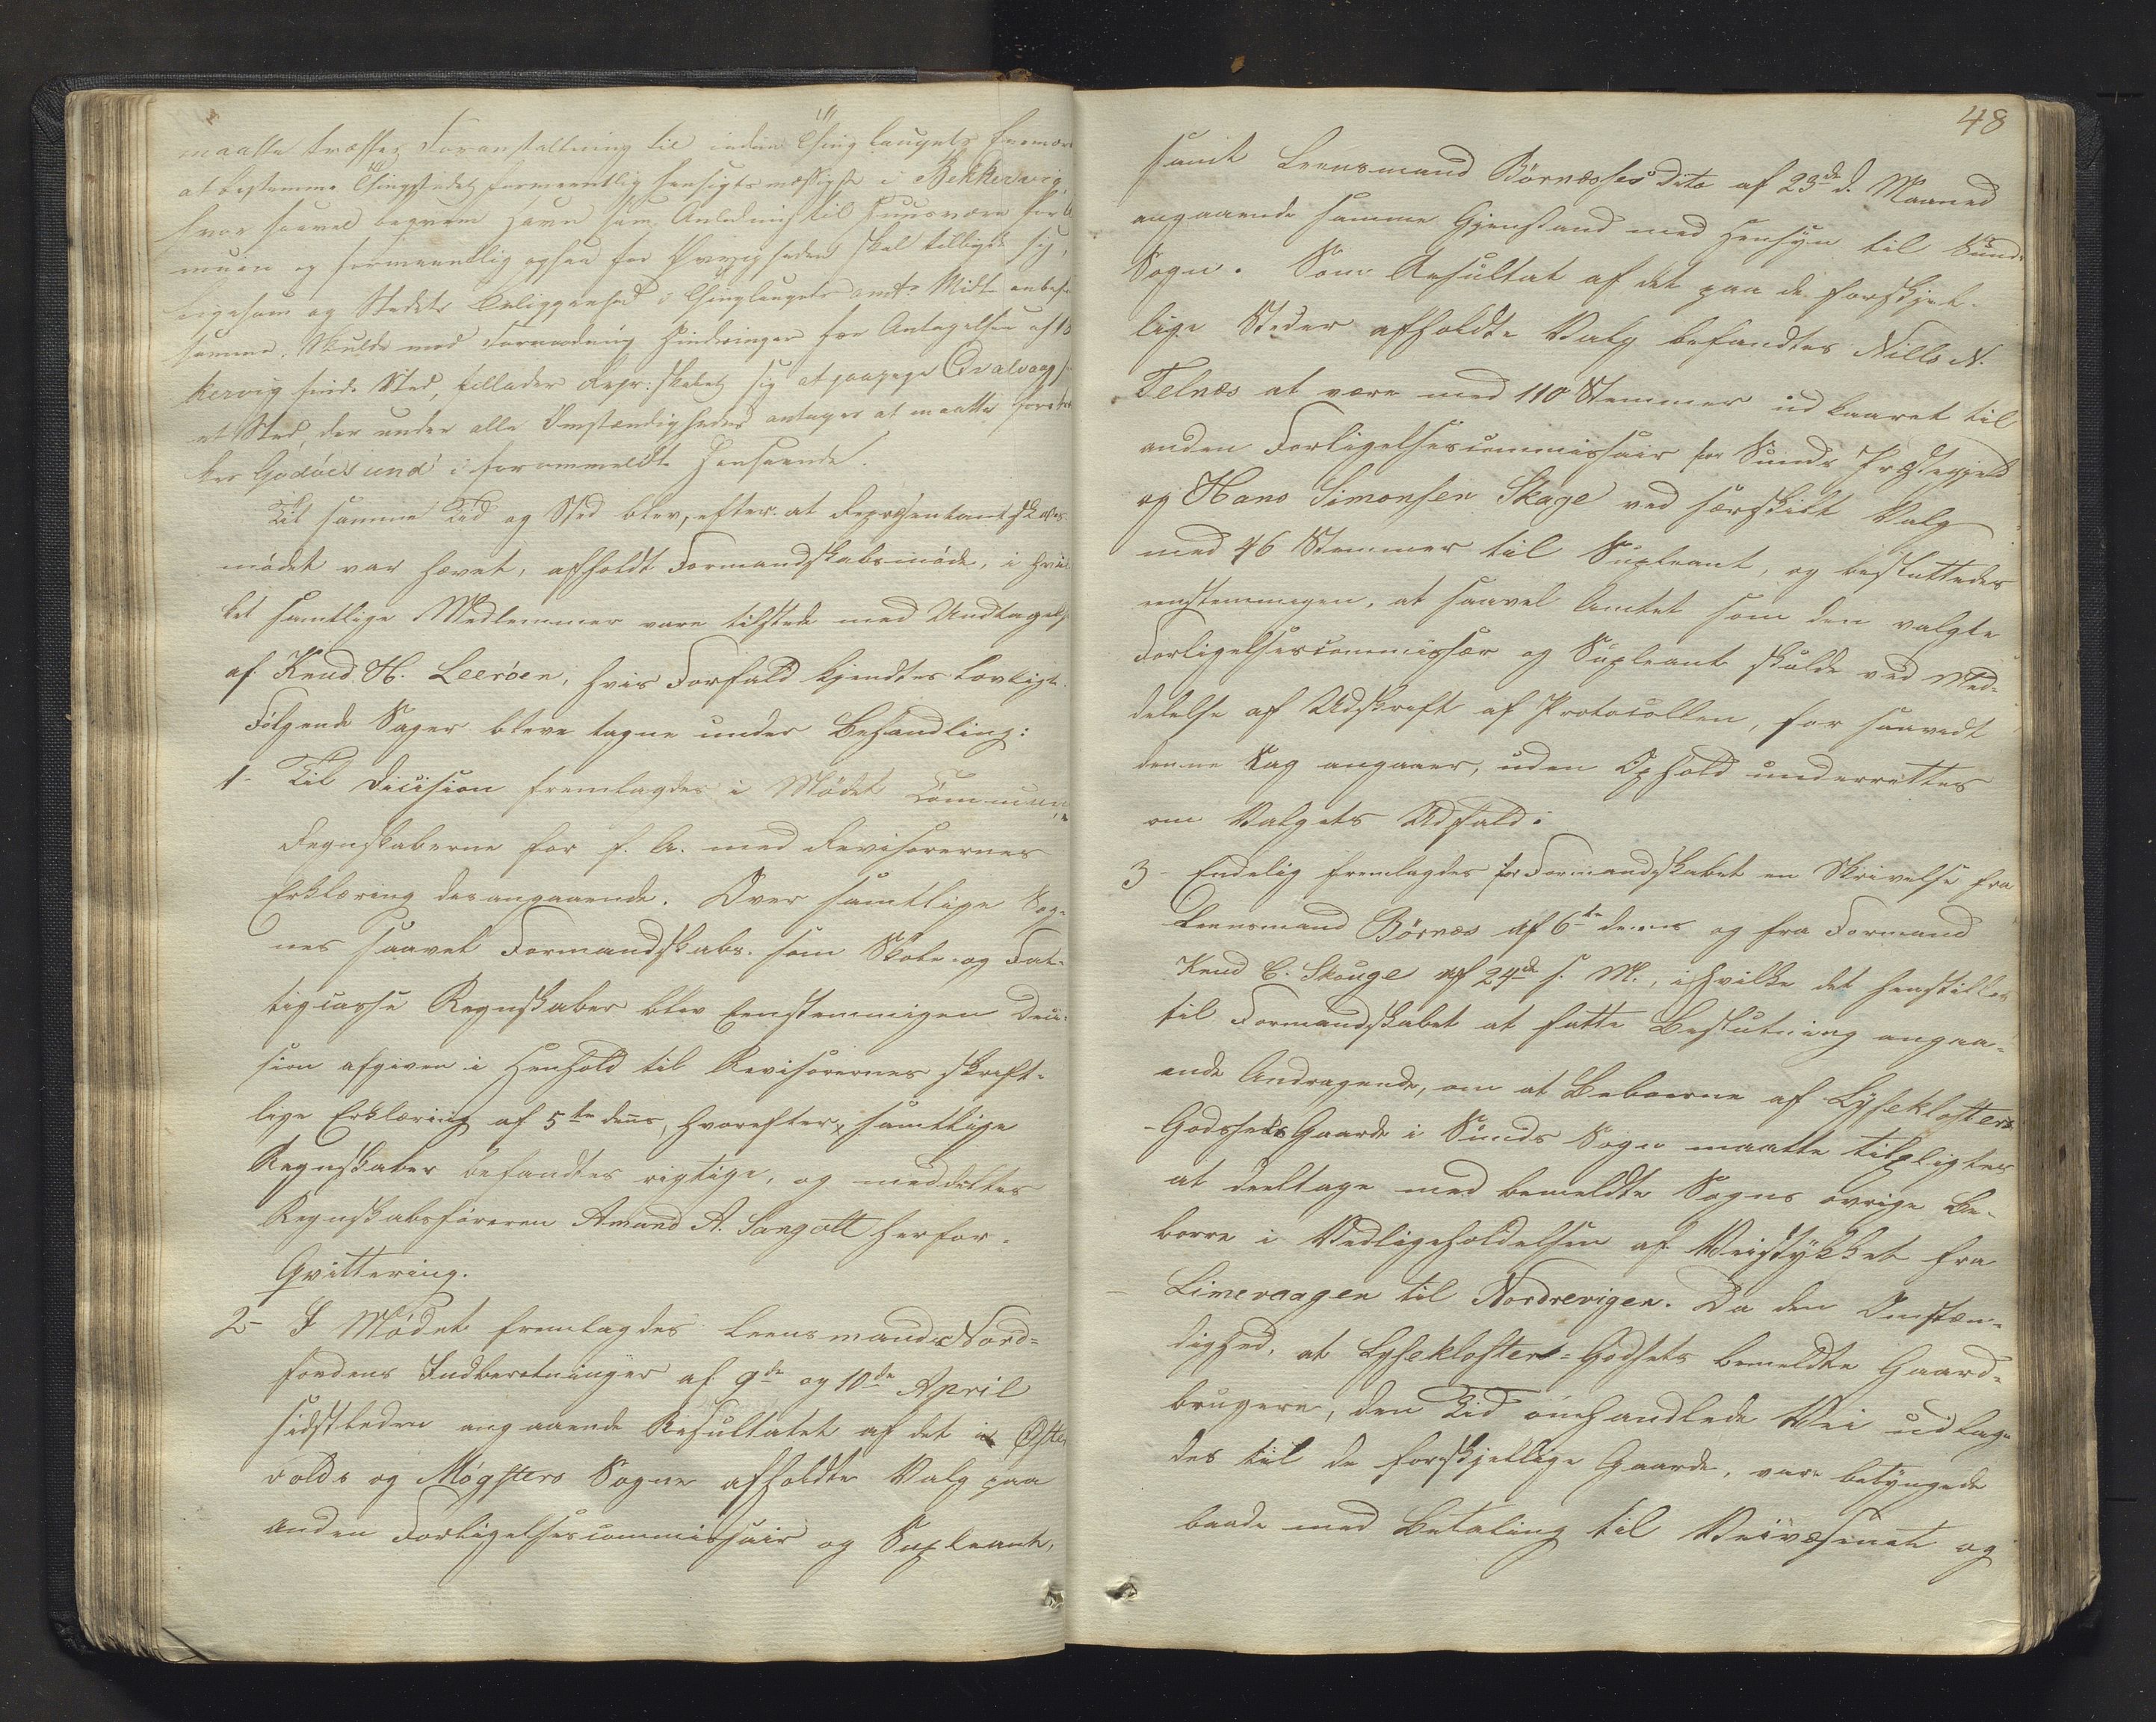 maatte træffes Foranstaltning til inden Thinglaugets Enemærker
at bestemme Thingstedet formeentlig hensigtsmæssigst i Bekkervig,
hvor saavel beqvem Havn som Anledning til Huusvære for
muen og formeentlig ogsaa for Øvrigheden skal tilbyde sig,
ligesom og Stedets Beliggenhed i Thinglaugets Midte anbefaler
samme. Skulde mod Formodning Hindringer for Antagelsen af Bek
kervig finde Sted, tillader Repr:skabet sig at paapege Qvalvaag
et Sted, der under alle Omstændigheder antages at maatte foretræk
kes Godøesund i forommeldte Henseende.
Til samme Tid og Sted blev, efter at Repræsentantskabs
mödet var hævet, afholdt Formandskabsmöde, i hvil
ket samtlige Medlemmer vare tilstede med Undtagelse
af Knud H. Leeröen, hvis Forfald kjendtes lovligt.
Fölgende Sager bleve tagne under Behandling:
1- Til Decision fremlagdes i Mödet Commune
Regnskaberne for f. A. med Revisorernes
Erklæring desangaaende. Over samtlige Sog-
nes saavel Formandskabs- som Skole- og Fat-
tigcasse Regnskaber blev Eenstemmigen Deci-
sion afgiven i Henhold til Revisorernes skrift-
lige Erklæring af 5te dennes, hvorefter samtlige
Regnskaber befandtes rigtige, og meddeeltes
Regnskabsföreren Amand A. Sangolt herfor
Qvittering.
2- I Mödet fremlagdes Leensmand Nord-
fondens Indberetninger af 9de og 10de April
sidstleden angaaende Resultatet af det i Øster
volds og Mögsters Sogne afholdte Valg paa
anden Forligelsescommissair og Supleant,
48
samt Leensmand Börnæsses Dito af 23de d. Maaned
angaaende samme Gjenstand med Hensyn til Sunds
Sogn. Som Resultat af det paa de forskjel-
lige Steder afholdte Valg befandtes Nills N.
Telnæs at være med 110 Stemmer udkaaret til
anden Forligelsescommissair for Sunds Præstegjeld
og Hans Simonsen Skage ved særskilt Valg
med 46 Stemmer til Supleant, og besluttedes
eenstemmigen, at saavel Amtet som den valgte
Forligelsescommissær og Supleant skulde ved Med-
delelse af Udskrift af Protocollen, for saavidt
denne Sag angaaer, uden Ophold underrettes
om Valgets Udfald.
3- Endelig fremlagdes for Formandskabet en Skrivelse fra
Leensmand Börnæs af 6te dennes og fra Formand
Knud C. Skouge af 24de f. M., i hvilke det henstilles
til Formandskabet at fatte Beslutning angaa-
ende Andragende, om at Beboerne af Lysekloster
-Godsets Gaarde i Sunds Sogn maatte tilpligtes
at deeltage med bemeldte Sogns övrige Be-
boere i Vedligeholdelsen af Veistykket fra
Limevaagen til Nordrevigen. Da den Omstæn-
dighed, at Lysekloster-Godsets bemeldte Gaard-
brugere, den Tid omhandlede Vei udlag-
des til de forskjellige Gaarde, vare betyngede
baade med Betaling til Veivæsenet og